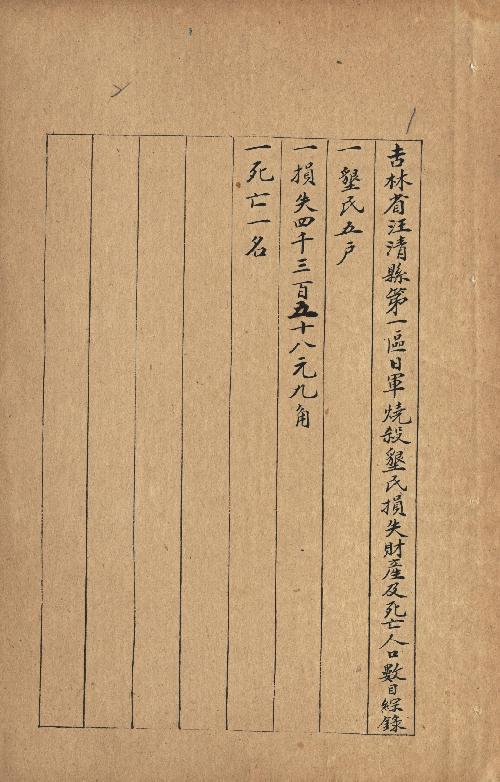 吉林省汪清縣第一區日軍燒殺墾民損失財產及死亡人口數目綜錄
一墾民五戶
一損失四千三百五十八元九角
一死亡一名